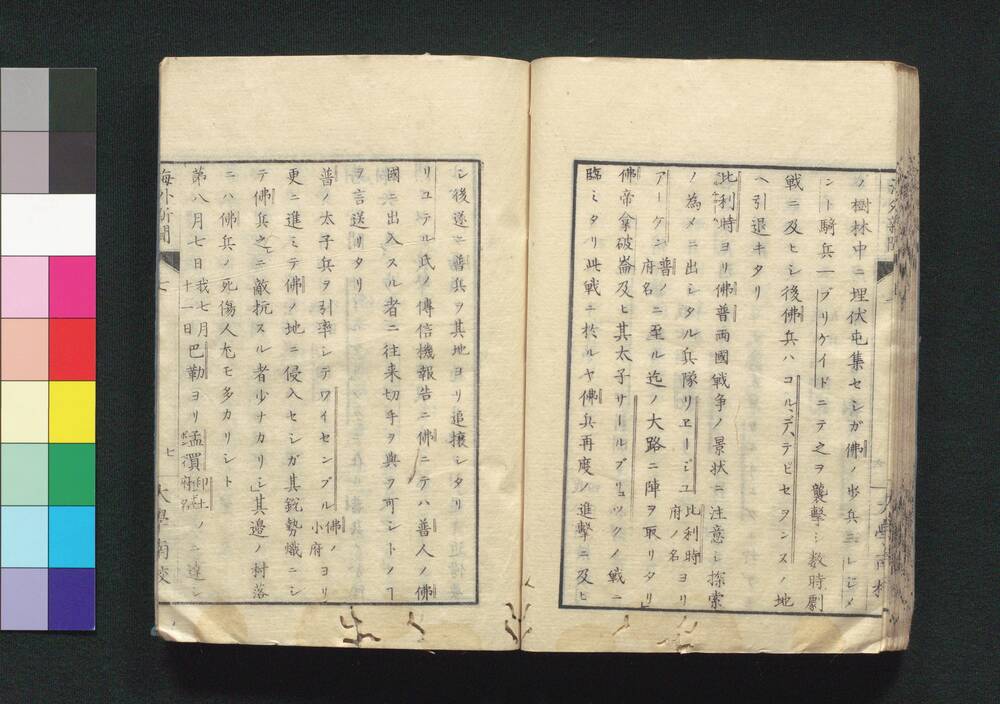 ノ樹林中ニ埋伏屯集セシガ佛ノ歩兵三レジメ
ント騎兵一ブリゲイドニテ之ヲ襲撃シ数時劇
戦ニ及ヒシ後佛兵ハコルデ、テビセヲンスノ地
ヘ引退キタリ
比利時ヨリ佛普両國戦争ノ景状ニ注意シ探索
ノ為メニ出シタル兵隊リヱージユ比利時ノ府名ヨリ
アーケン普ノ府名ニ至ル迄ノ大路ニ陣ヲ取リタリ
佛帝拿破崙及ヒ其太子サールブリュックノ戦ニ
臨ミタリ此戦ニ於ルヤ佛兵再度ノ進撃ニ及ヒ
シ後遂ニ普兵ヲ其地ヨリ追攘シタリ
リユテル氏ノ傳信機報告ニ佛ニテハ普人ノ佛
國ニ出入スル者ニ往来切手ヲ與フ可シトノヿ
ヲ言送リタリ
普ノ太子兵ヲ引率シテワイセンブル佛ノ小府ヨリ
更ニ進ミテ佛ノ地ニ侵入セシガ其鋭勢熾ニシ
テ佛兵之ニ敵抗スル者少ナカリシ其邊ノ村落
ニハ佛兵ノ死傷人尤モ多カリシト
第八月七日我七月十一日巴勒ヨリ孟買印土府名ノニ達シ
海外新聞
七
七
大學南校